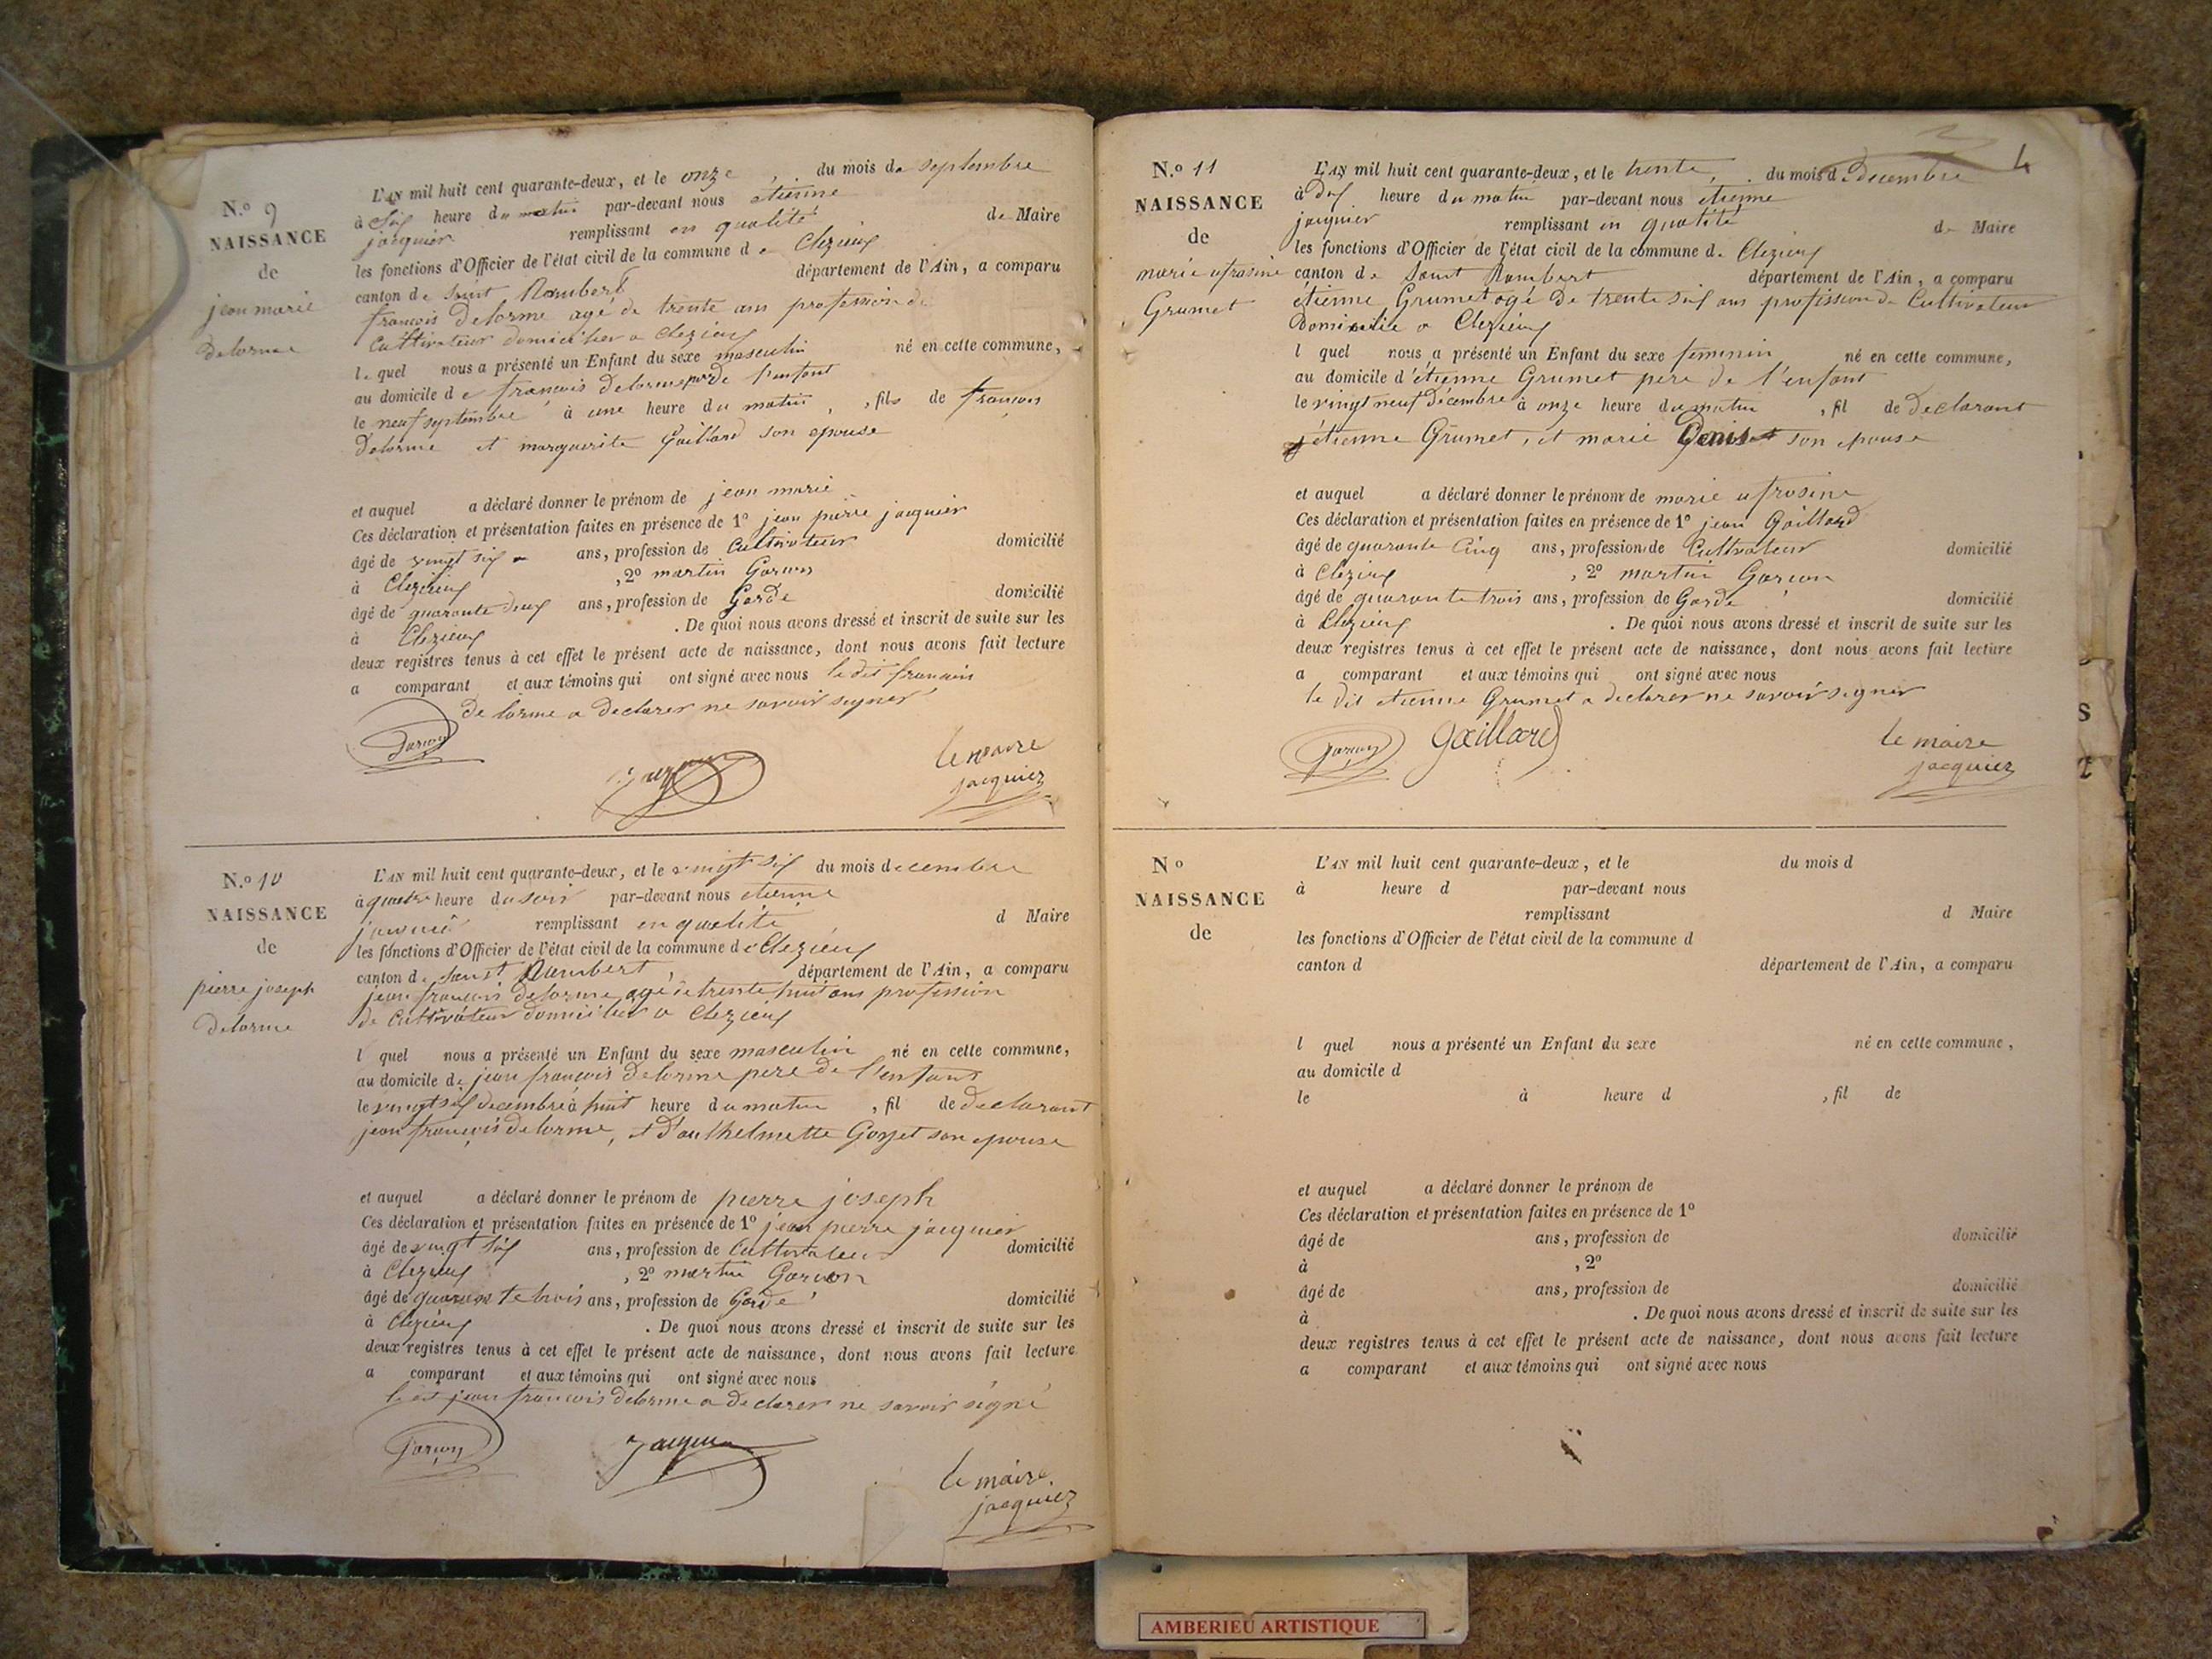 N.o 9
NAISSANCE
de
jean marie
delorme
L'AN mil huit cent quarante-deux, et le onze du mois de septembre
à six heure du matin par-devant nous etienne
jacquier remplissant en qualité de Maire
les fonctions d'Officier de l'état civil de la commune de Clezieux
canton de saint Rambert département de l'Ain, a comparu
françois delorme agé de trente ans profession de
Cultivateur domicilier a Clezieux
le quel nous a présenté un Enfant du sexe masculin né en cette commune,
au domicile de françois delorme de l'enfant
le neuf septembre à une heure du matin, fils de françois
Delorme et marguerite Gaillard son epouse
et auquel a déclaré donner le prénom de jean marie
Ces déclaration et présentation faites en présence de 1o jean pierre jacquier
âgé de vingt six ans, profession de Cultivateur domicilié
à Clezieux , 2o martin Garcon
âgé de quarante deux ans, profession de Garde domicilié
à Clezieux . De quoi nous avons dressé et inscrit de suite sur les
deux registres tenus à cet effet le présent acte de naissance, dont nous avons fait lecture
a comparant et aux témoins qui ont signé avec nous le dit francois
de lorme a declarer ne savoir signer
Garcon
Jacquier
le maire
jacquier
N.o 10
NAISSANCE
de
pierre joseph
delorme
L'AN mil huit cent quarante-deux, et le vingt six du mois decembre
à quatre heure du soir par-devant nous etienne
remplissant en qualité d Maire
les fonctions d'Officier de l'état civil de la commune de Clezieux
canton de saint Rambert département de l'Ain, a comparu
jean françois delorme agé de trente huit ans profession
de Cultivateur domicilier a Clezieux
l quel nous a présenté un Enfant du sexe masculin né en cette commune,
au domicile de jean françois delorme pere de l'enfant
le vingt six decembre à huit heure du matin , fil de declarant
jean françois delorme, et d'anthelmette Gozet son epouse
et auquel a déclaré donner le prénom de pierre joseph
Ces déclaration et présentation faites en présence de 1o jean pierre jacquier
âgé de vingt six ans, profession de Cultivateur domicilié
à Clezieux , 2o martin Garcon
âgé de quarante trois ans, profession de Garde domicilié
à Clezieux . De quoi nous avons dressé et inscrit de suite sur les
deux registres tenus à cet effet le présent acte de naissance, dont nous avons fait lecture
a comparant et aux témoins qui ont signé avec nous
jean francois delorme a declarer ne savoir signé
Garcon
Jacquier
le maire
jacquier
4
N.o 11
NAISSANCE
de
marie ufrosine
Grumet
L'AN mil huit cent quarante-deux, et le trente, du mois d decembre
à dix heure du matin par-devant nous etienne
jacquier remplissant en qualité de Maire
les fonctions d'Officier de l'état civil de la commune de Clezieux
canton de Saint Rambert département de l'Ain, a comparu
étienne Grumet agé de trente six ans profission de Cultivateur
Domicilie a Clezieux
l quel nous a présenté un Enfant du sexe feminin né en cette commune,
au domicile d'étienne Grumet pere de l'enfant
le vingt neuf décembre à onze heure du matin , fil de declarant
étienne Grumet, et marie Denis son epouse
et auquel a déclaré donner le prénom de marie ufrosine
Ces déclaration et présentation faites en présence de 1o jean Gaillard
âgé de quarante Cinq ans, profession de Cultivateur domicilié
à Clezieux , 2o martin Garcon
âgé de quarante trois ans, profession de Garde domicilié
à Clezieux . De quoi nous avons dressé et inscrit de suite sur les
deux registres tenus à cet effet le présent acte de naissance, dont nous avons fait lecture
a comparant et aux témoins qui ont signé avec nous
le dit etienne Grumet a declarer ne savoir signer
Garcon
Gaillard
le maire
jacquier
N o
NAISSANCE
de
L'AN mil huit cent quarante-deux, et le du mois d
à heure d par-devant nous
remplissant d Maire
les fonctions d'Officier de l'état civil de la commune d
canton d département de l'Ain, a comparu
l quel nous a présenté un Enfant du sexe né en cette commune,
au domicile d
le à heure d , fil de
et auquel a déclaré donner le prénom de
Ces déclaration et présentation faites en présence de 1o
âgé de ans, profession de domicilié
à , 2o
âgé de ans, profession de domicilié
à . De quoi nous avons dressé et inscrit de suite sur les
deux registres tenus à cet effet le présent acte de naissance, dont nous avons fait lecture
a comparant et aux témoins qui ont signé avec nous
AMBERIEU ARTISTIQUE